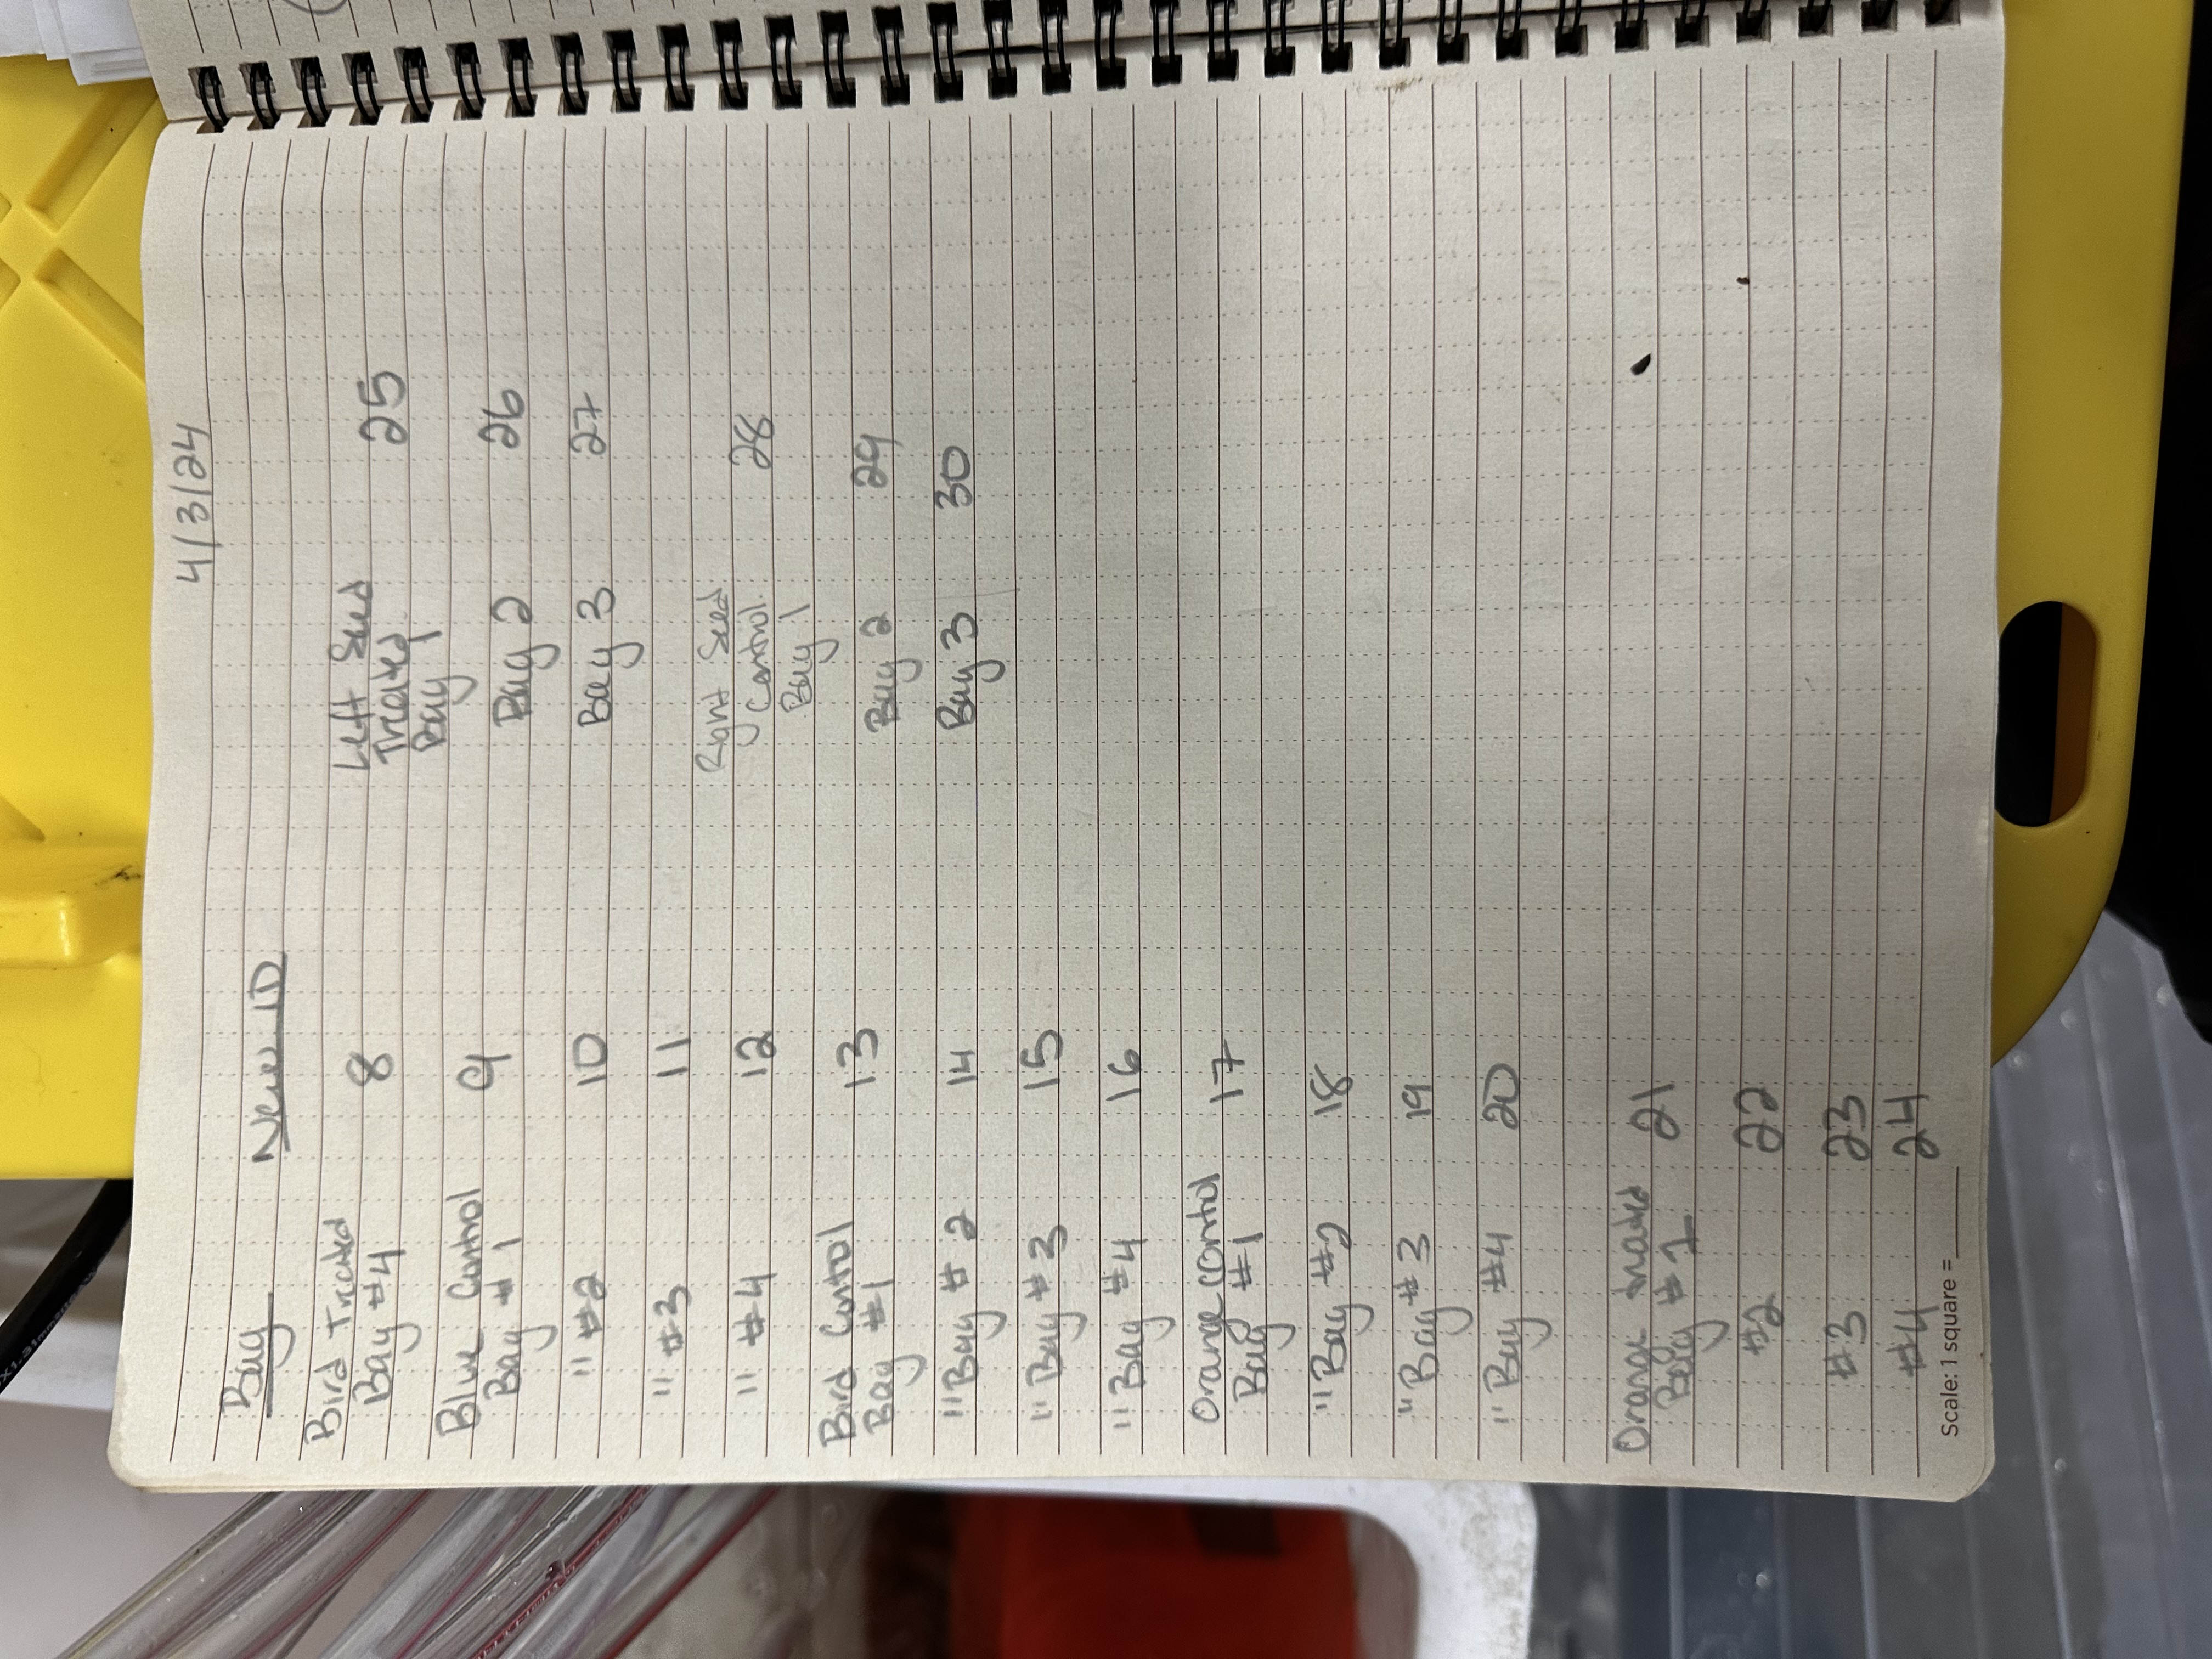 4/3/24
Bag New ID
Bird Treated
Bag #4 8
Blue Control
Bag #1 9
" #2 10
" #3 11
" #4 12
Bird Control
Bag #1 13
" Bag #2 14
" Bag #3 15
" Bag #4 16
Orange control
Bag #1 17
" Bag #2 18
" Bag #3 19
" Bag #4 20
Orange treated
Bag #1 21
#2 22
#3 23
#4 24
Left Seed
Treated 25
Bag 1
Bag 2 26
Bag 3 27
Right Seed
Control 28
Bag 1
Bag 2 29
Bag 3 30
Scale: 1 square =